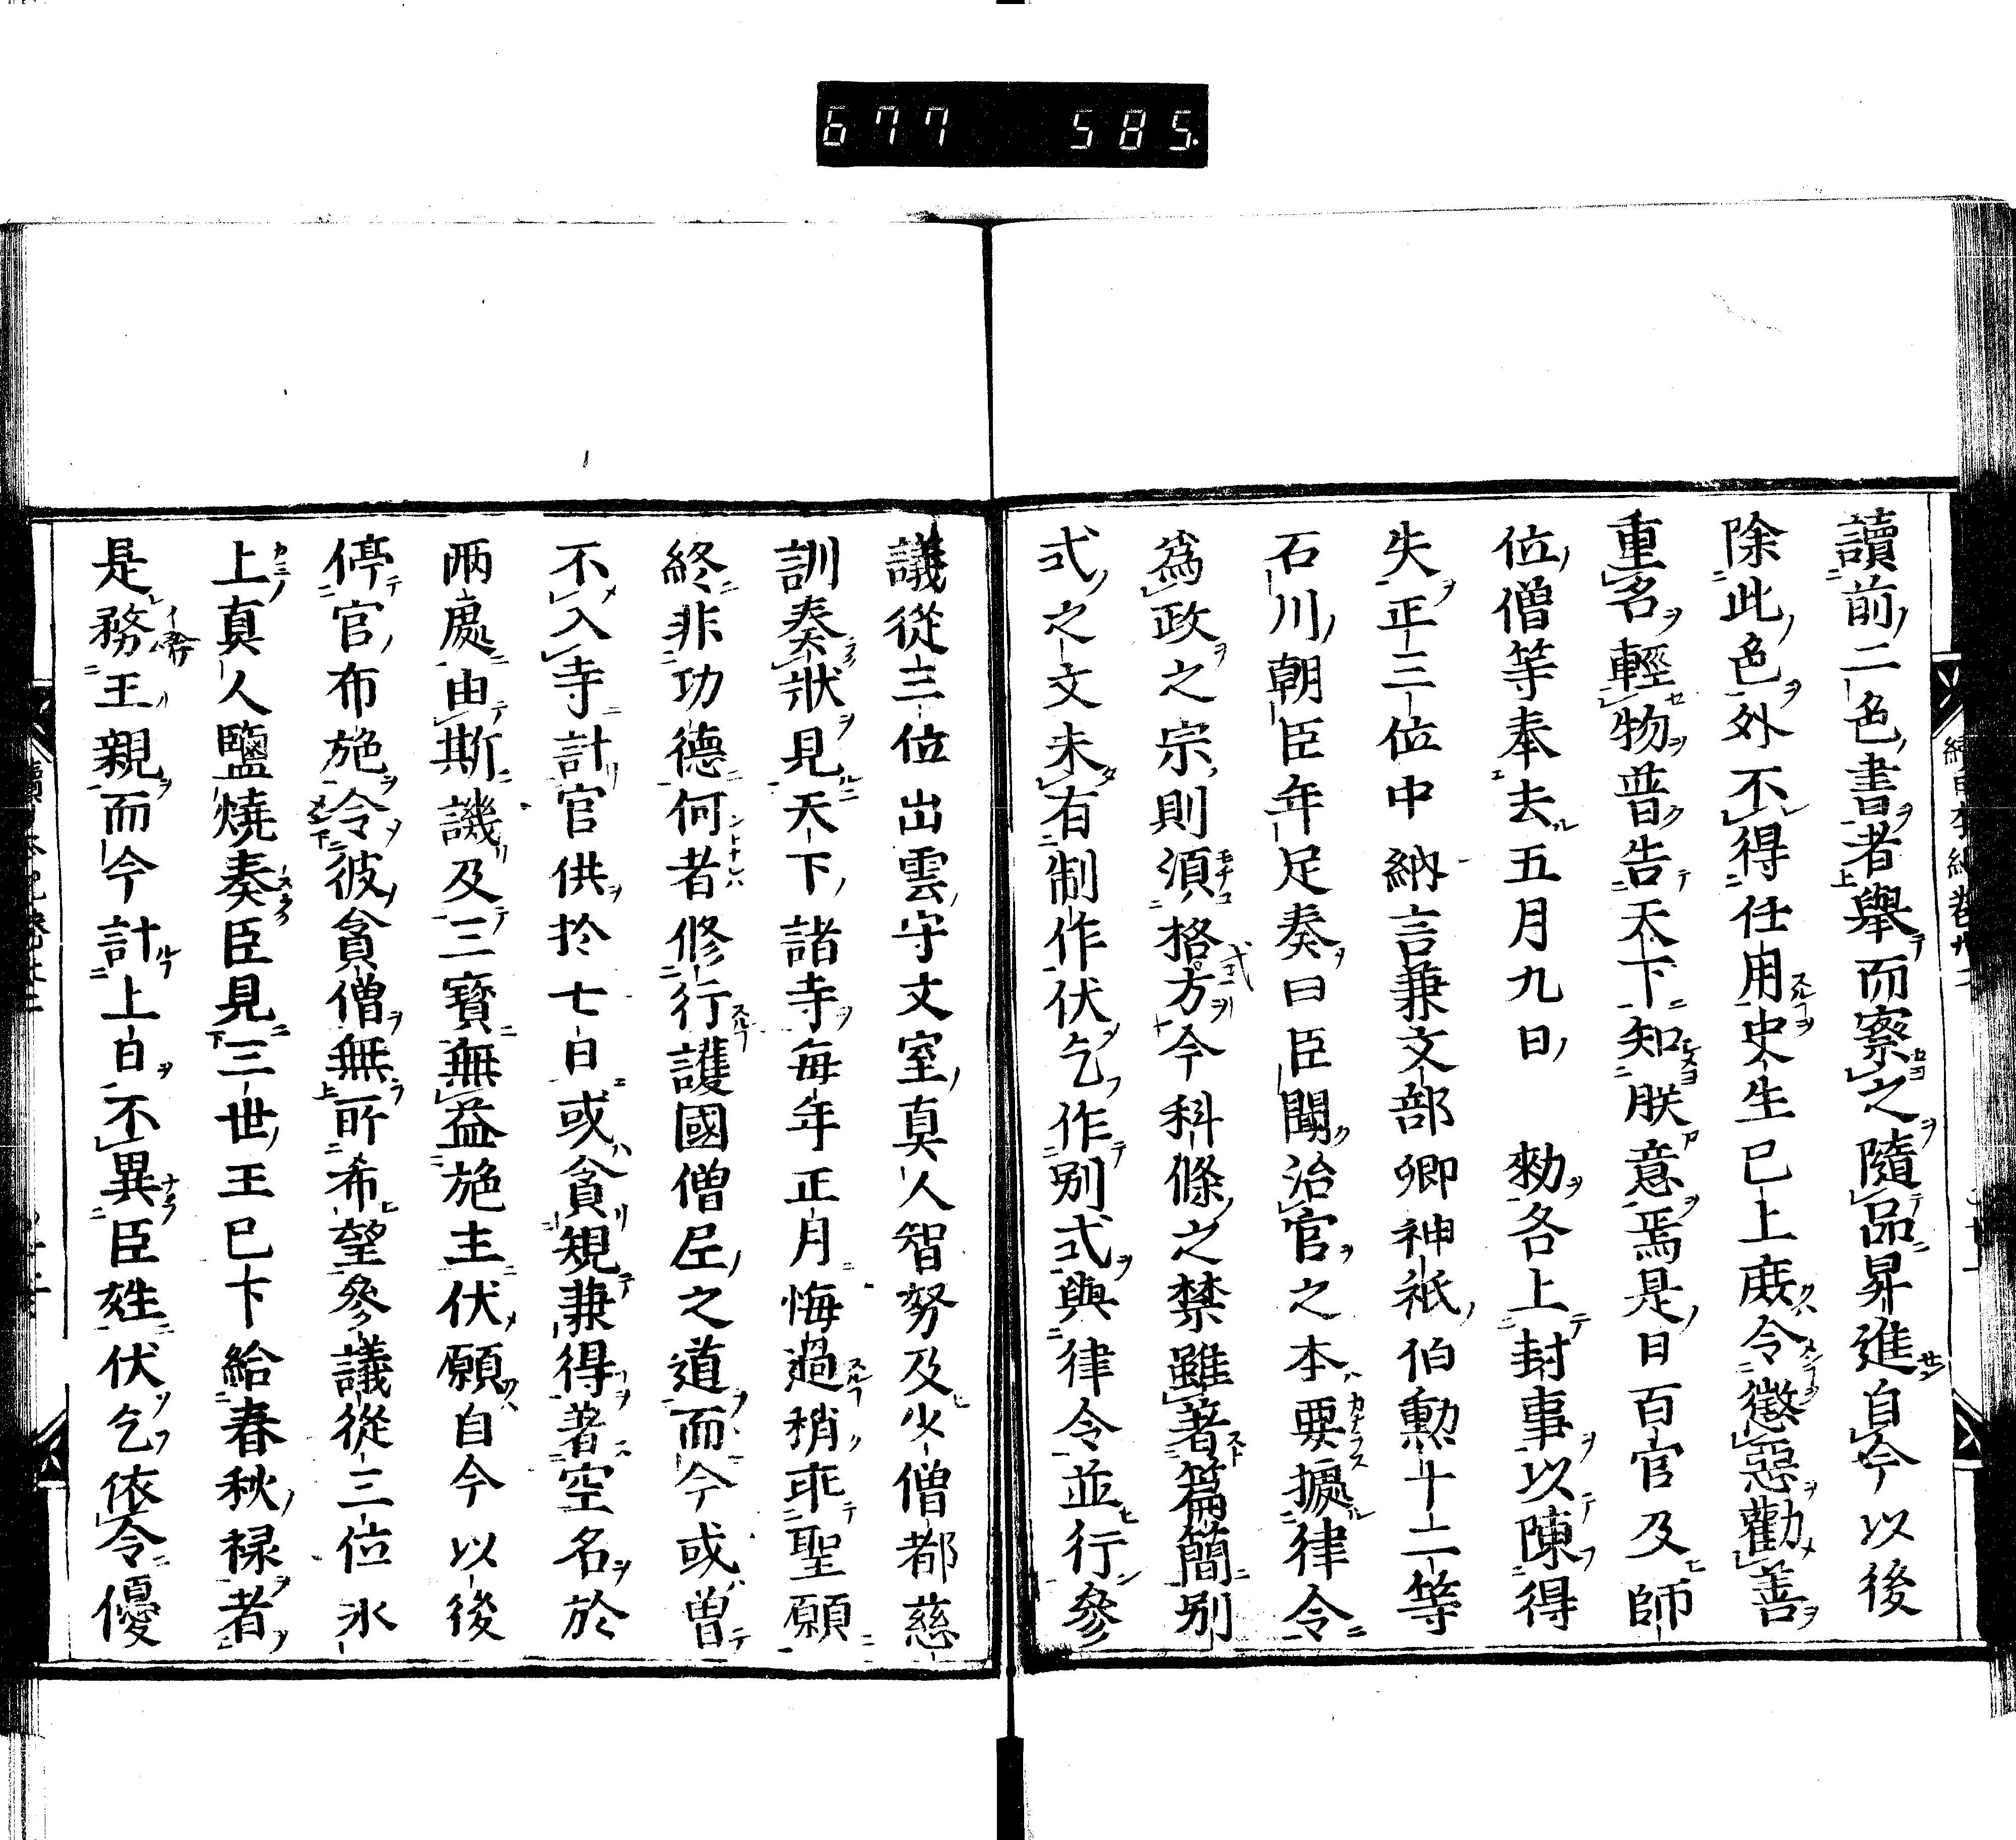 677 585.
讀前二色書者舉而察之隨品昇進自今以後
除此色外不得任用史生已上庶令懲惡勸善
重名輕物普告天下知朕意焉是日百官及師
位僧等奉去五月九日　勅各上封事以陳得
失正三位中納言兼文部卿神祇伯勲十二等
石川朝臣年足奏曰臣聞治官之本要據律令
爲政之宗則須格方今科條之禁雖著篇簡別
式之文未有制作伏乞作別式與律令並行參
議從三位出雲守文室真人智努及少僧都慈
訓奏狀見天下諸寺毎年正月悔過稍乖聖願
終非功德何者修行護國僧尼之道而今或曽
不入寺計官供於七日或貪規兼得著空名於
兩處由斯譏及三寶無益施主伏願自今以後
停官布施令彼貪僧無所希望參議從三位氷
上真人鹽燒奏臣見三世王已下給春秋禄者
是務王親而今計上日不異臣姓伏乞依令優